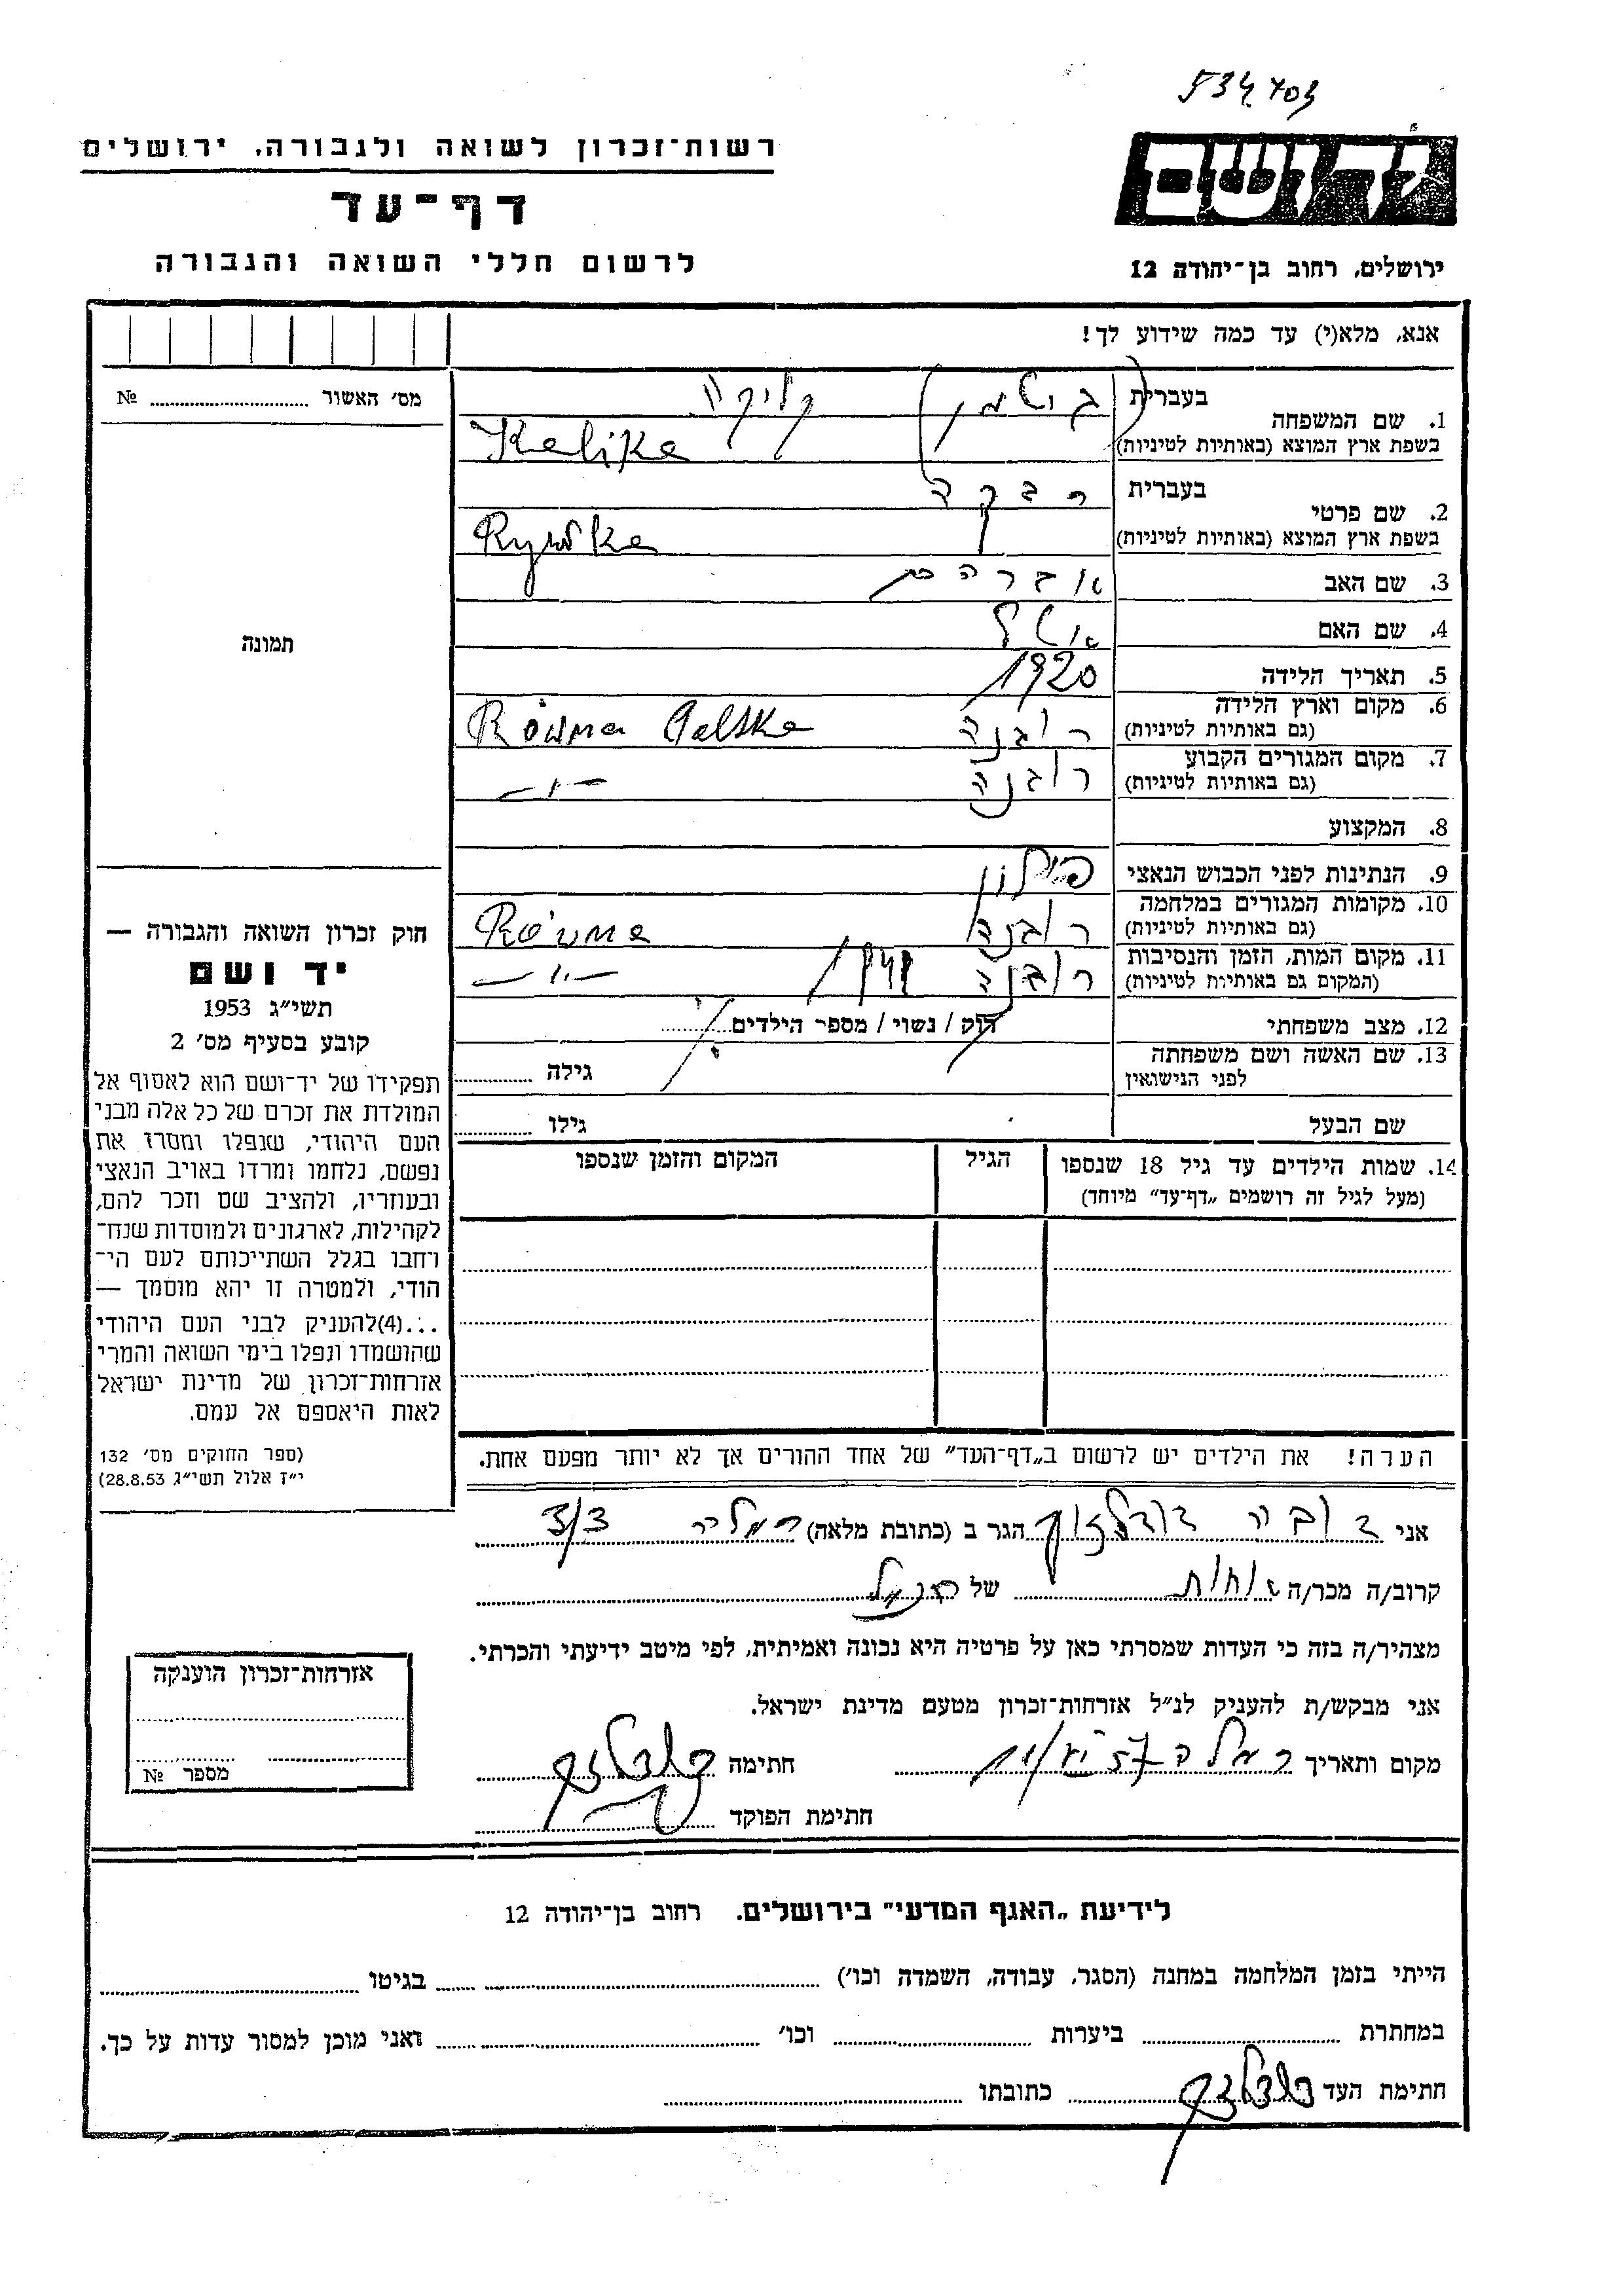 534703
רשות־זכרון לשואה ולגבורה, ירושלים
יד ושם
דף־עד
לרשום חללי השואה והגבורה
ירושלים, רחוב בן־יהודה 12
אנא, מלא(י) עד כמה שידוע לך!
מס׳ האשור № ........
1. שם המשפחה בעברית (גושמן) קליקה
בשפת ארץ המוצא (באותיות לטיניות) Kelike
2. שם פרטי בעברית רבקה
בשפת ארץ המוצא (באותיות לטיניות) Rywke
3. שם האב אברהם
4. שם האם
5. תאריך הלידה 1920
6. מקום וארץ הלידה (גם באותיות לטיניות) רובנה Równe Polska
7. מקום המגורים הקבוע (גם באותיות לטיניות) רובנה —״—
8. המקצוע
9. הנתינות לפני הכבוש הנאצי פולין
10. מקומות המגורים במלחמה (גם באותיות לטיניות) רובנה Równe
11. מקום המות, הזמן והנסיבות (המקום גם באותיות לטיניות) רובנה 1941 —״—
12. מצב משפחתי רוק / נשוי / מספר הילדים ........
13. שם האשה ושם משפחתה לפני הנישואין גילה ........
שם הבעל גילו ........
14. שמות הילדים עד גיל 18 שנספו הגיל המקום והזמן שנספו
(מעל לגיל זה רושמים „דף־עד״ מיוחד)
תמונה
חוק זכרון השואה והגבורה —
יד ושם
תשי״ג 1953
קובע בסעיף מס׳ 2
תפקידו של יד־ושם הוא לאסוף אל
המולדת את זכרם של כל אלה מבני
העם היהודי, שנפלו ומסרו את
נפשם, נלחמו ומרדו באויב הנאצי
ובעוזריו, ולהציב שם וזכר להם,
לקהילות, לארגונים ולמוסדות שנח־
רחבו בגלל השתייכותם לעם הי־
הודי, ולמטרה זו יהא מוסמך —
...(4)להעניק לבני העם היהודי
שהושמדו ונפלו בימי השואה והמרי
אזרחות־זכרון של מדינת ישראל
לאות היאספם אל עמם.
(ספר החוקים מס׳ 132
י״ז אלול תשי״ג 28.8.53)
הערה! את הילדים יש לרשום ב„דף־העד״ של אחד ההורים אך לא יותר מפעם אחת.
אני דובה הגר ב (כתובת מלאה) רמלה 3/3
קרוב/ה מכר/ה אחות של הנ״ל
מצהיר/ה בזה כי העדות שמסרתי כאן על פרטיה היא נכונה ואמיתית, לפי מיטב ידיעתי והכרתי.
אני מבקש/ת להעניק לנ״ל אזרחות־זכרון מטעם מדינת ישראל.
מקום ותאריך רמלה חתימה
חתימת הפוקד
אזרחות־זכרון הוענקה
מספר №
לידיעת „האגף המדעי״ בירושלים. רחוב בן־יהודה 12
הייתי בזמן המלחמה במחנה (הסגר, עבודה, השמדה וכו׳) ........ בגיטו ........
במחתרת ........ ביערות ........ וכו׳ ........ ואני מוכן למסור עדות על כך.
חתימת העד כתובתו ........